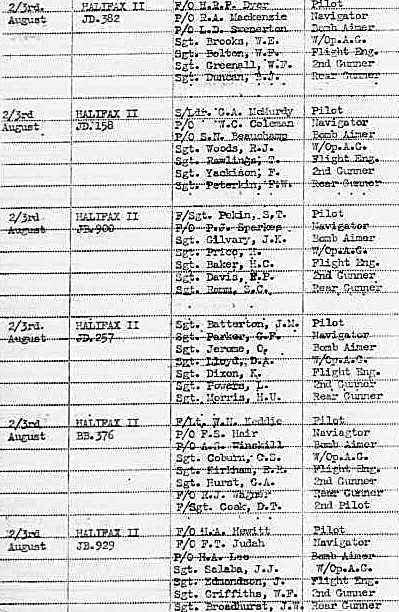 2/3rd. HALIFAX II F/O H.R.F. Dyer Pilot
August JD.382 P/O R.A. Mackenzie Navigator
P/O L.D. Swenerton Bomb Aimer
Sgt. Brooks, W.E. W/Op.A.G.
Sgt. Bolton, W.F. Flight Eng.
Sgt. Greenall, W.F. 2nd Gunner
Sgt. Duncan, B.J. Rear Gunner
2/3rd HALIFAX II S/Ldr. G.A. McMurdy Pilot
August JD.158 F/O W.C. Coleman Navigator
P/O S.N. Beauchamp Bomb Aimer
Sgt. Woods, R.J. W/Op.A.G.
Sgt. Rawlings, T. Flight Eng.
Sgt. Yackison, F. 2nd Gunner
Sgt. Peterkin, F.W. Rear Gunner
2/3rd HALIFAX II F/Sgt. Pekin, S.T. Pilot
August JB.900 P/O P.J. Sparkes Navigator
Sgt. Gilvary, J.K. Bomb Aimer
Sgt. Price, W/Op.A.G.
Sgt. Baker, H.C. Flight Eng.
Sgt. Davis, 2nd Gunner
Sgt. S.C. Rear Gunner
2/3rd. HALIFAX II Sgt. Batterton, J.M. Pilot
August JD.257 Sgt. Parker, G.F. Navigator
Sgt. Jerome, O. Bomb Aimer
Sgt. Lloyd, D.A. W/Op.A.G.
Sgt. Dixon, K. Flight Eng.
Sgt. Powers, L. 2nd Gunner
Sgt. Morris, H.U. Rear Gunner
2/3rd HALIFAX II F/Lt. W.H. Keddie Pilot
August BB.376 P/O F.S. Hair Naviagtor
P/O Winskill Bomb Aimer
Sgt. Coburn, C.S. W/Op.A.G.
Sgt. Kirkham, E.R. Flight Eng.
Sgt. Hurst, G.A. 2nd Gunner
F/O R.J. Wagner Rear Gunner
F/Sgt. Cook, D.T. 2nd Pilot
2/3rd HALIFAX II F/O H.A. Hewitt Pilot
August JB.929 F/O F.T. Judah Navigator
P/O H.A. Lee Bomb Aimer
Sgt. Salaba, J.J. W/Op.A.G.
Sgt. Edmondson, J. Flight Eng.
Sgt. Griffiths, W.F. 2nd Gunner
Sgt. Broadhurst, J.W. Rear Gunner